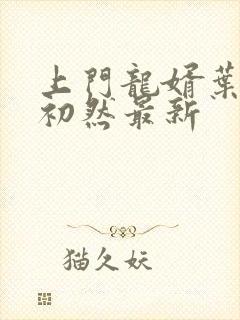 上門龍婿葉
初然最新
猫久妖